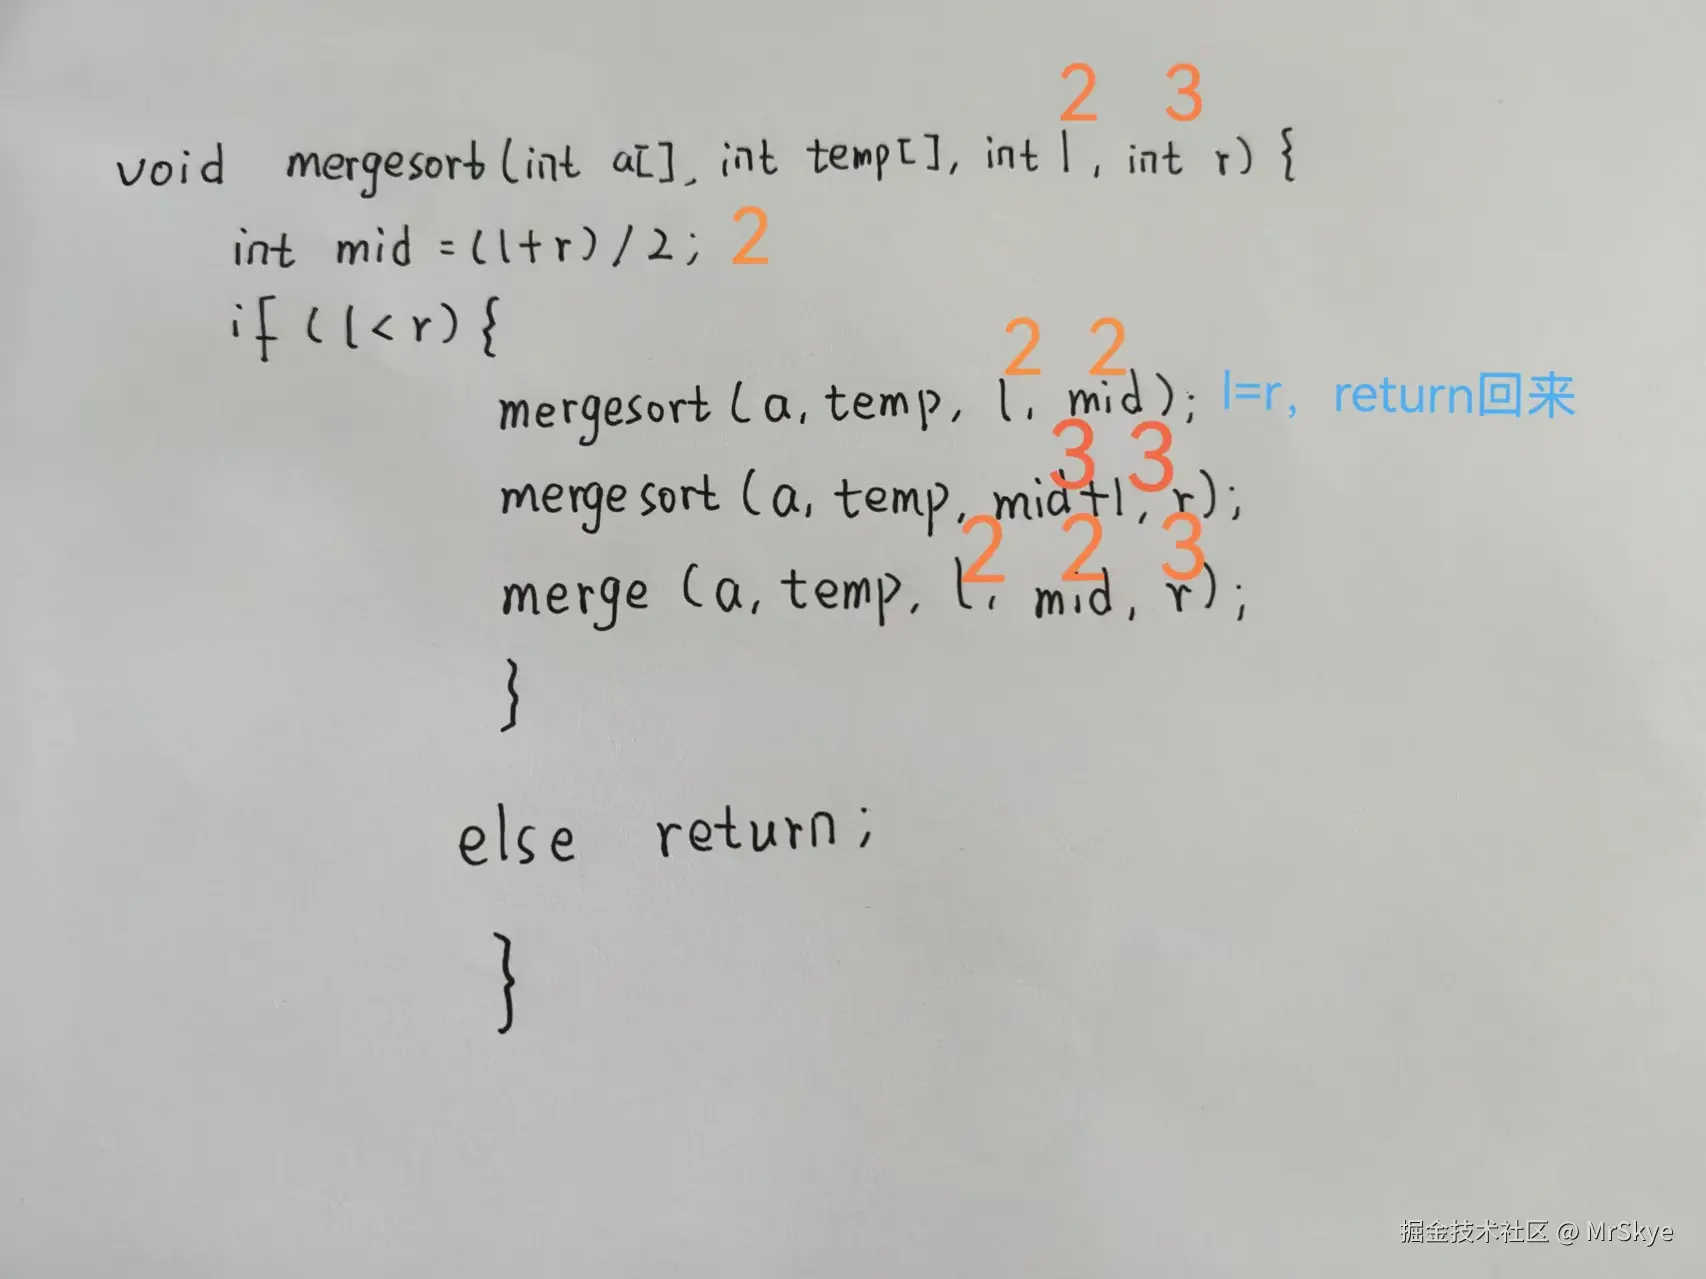 2 3
void mergesort(int a[], int temp[], int l, int r) {
int mid = (l+r)/2; 2
if (l<r) {
2 2
mergesort(a, temp, l, mid); l=r，return回来
3 3
mergesort(a, temp, mid+1, r);
2 2 3
merge(a, temp, l, mid, r);
}
else return;
}
掘金技术社区 @ MrSkye